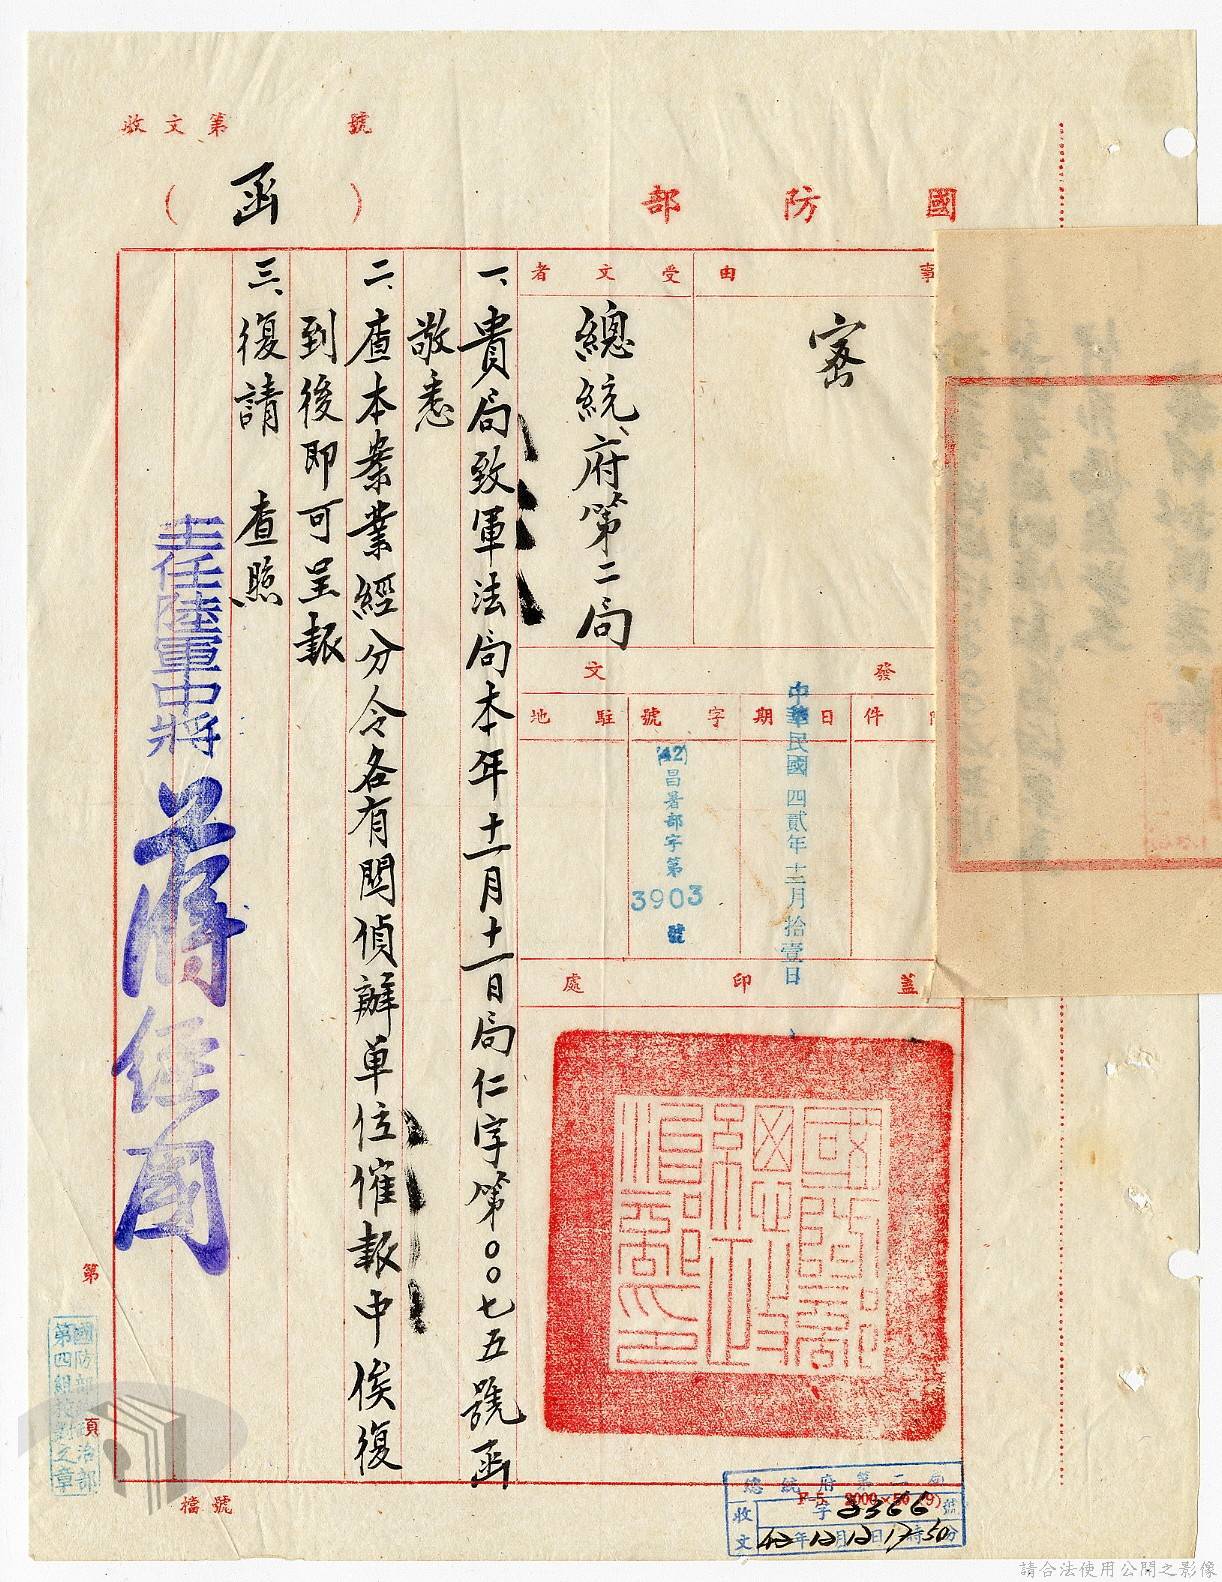 收文第 號
國防部
(函)
事由
密
受文者
總統府第二局
發文
附件
日期
中華民國四貳年十二月拾壹日
字號
(42)昌署部字第
3903
號
駐地
蓋印處
國防部總政治部印
一、貴局致軍法局本年十一月十一日局仁字第〇〇七五號函
敬悉
二、查本案業經分令各有關偵辦單位催報中俟復
到後即可呈報
三、復請 查照
主任陸軍中將
蔣經國
第
頁
國防部總政治部
第四組校對之章
檔號
F-5. 2000×50(9)
總統府第二局
收文
字3366號
42年12月12日17時50分
請合法使用公開之影像